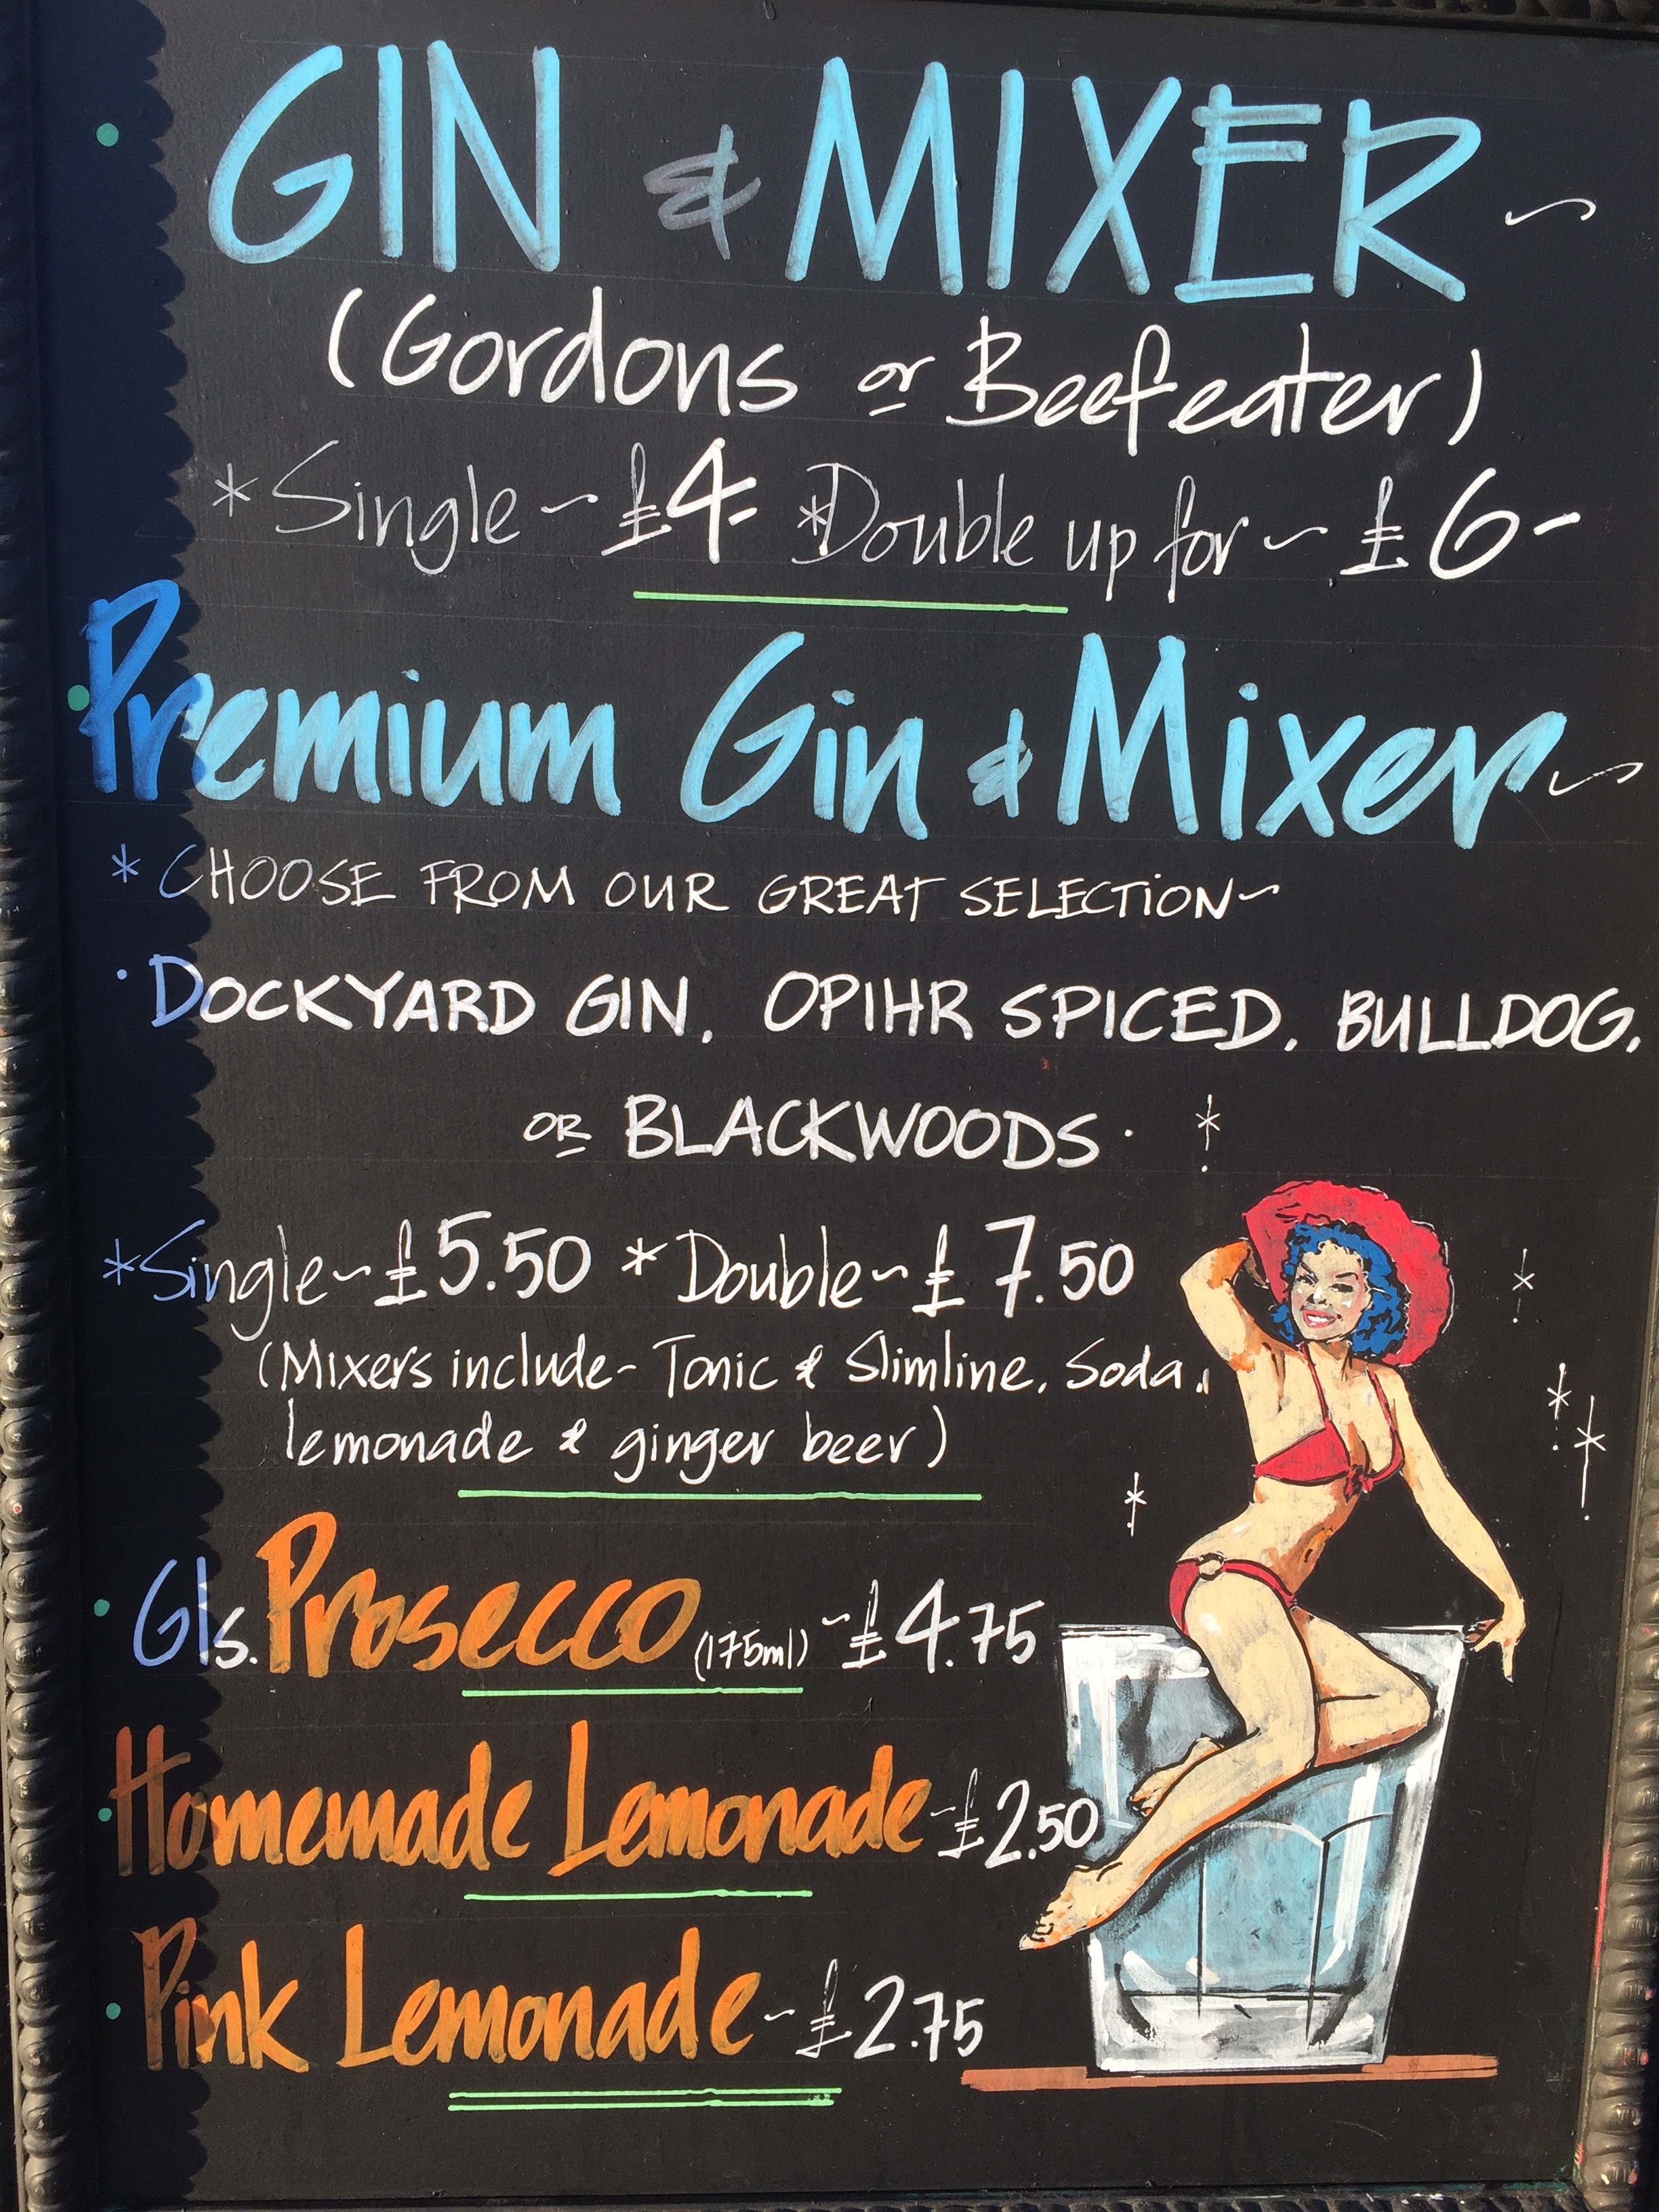 GIN & MIXER ~
(Gordons or Beefeater)
*Single ~ £4- *Double up for ~ £6-
Premium Gin & Mixer ~
* CHOOSE FROM OUR GREAT SELECTION ~
· DOCKYARD GIN, OPIHR SPICED, BULLDOG,
OR BLACKWOODS ·
*Single ~ £5.50 * Double ~ £7.50
(Mixers include - Tonic & Slimline, Soda,
lemonade & ginger beer)
· Gls. Prosecco (175ml) ~ £4.75
· Homemade Lemonade ~ £2.50
· Pink Lemonade ~ £2.75